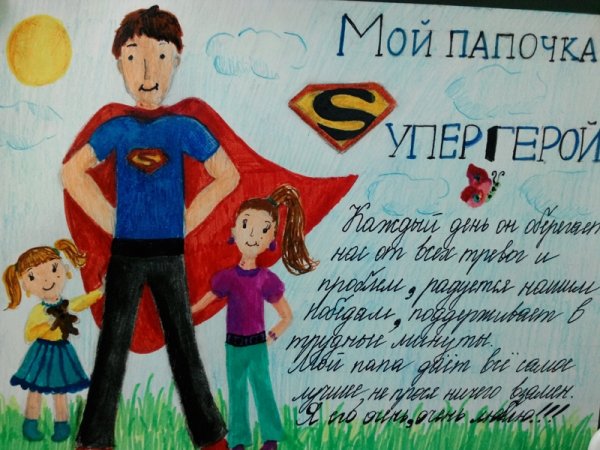 Мой папочка
S
упергерой
Каждый день он оберегает
нас от всех тревог и
проблем, радуется нашим
победам, поддерживает в
трудные минуты.
Мой папа даёт всё самое
лучшее, не прося ничего взамен.
Я его очень, очень люблю!!!